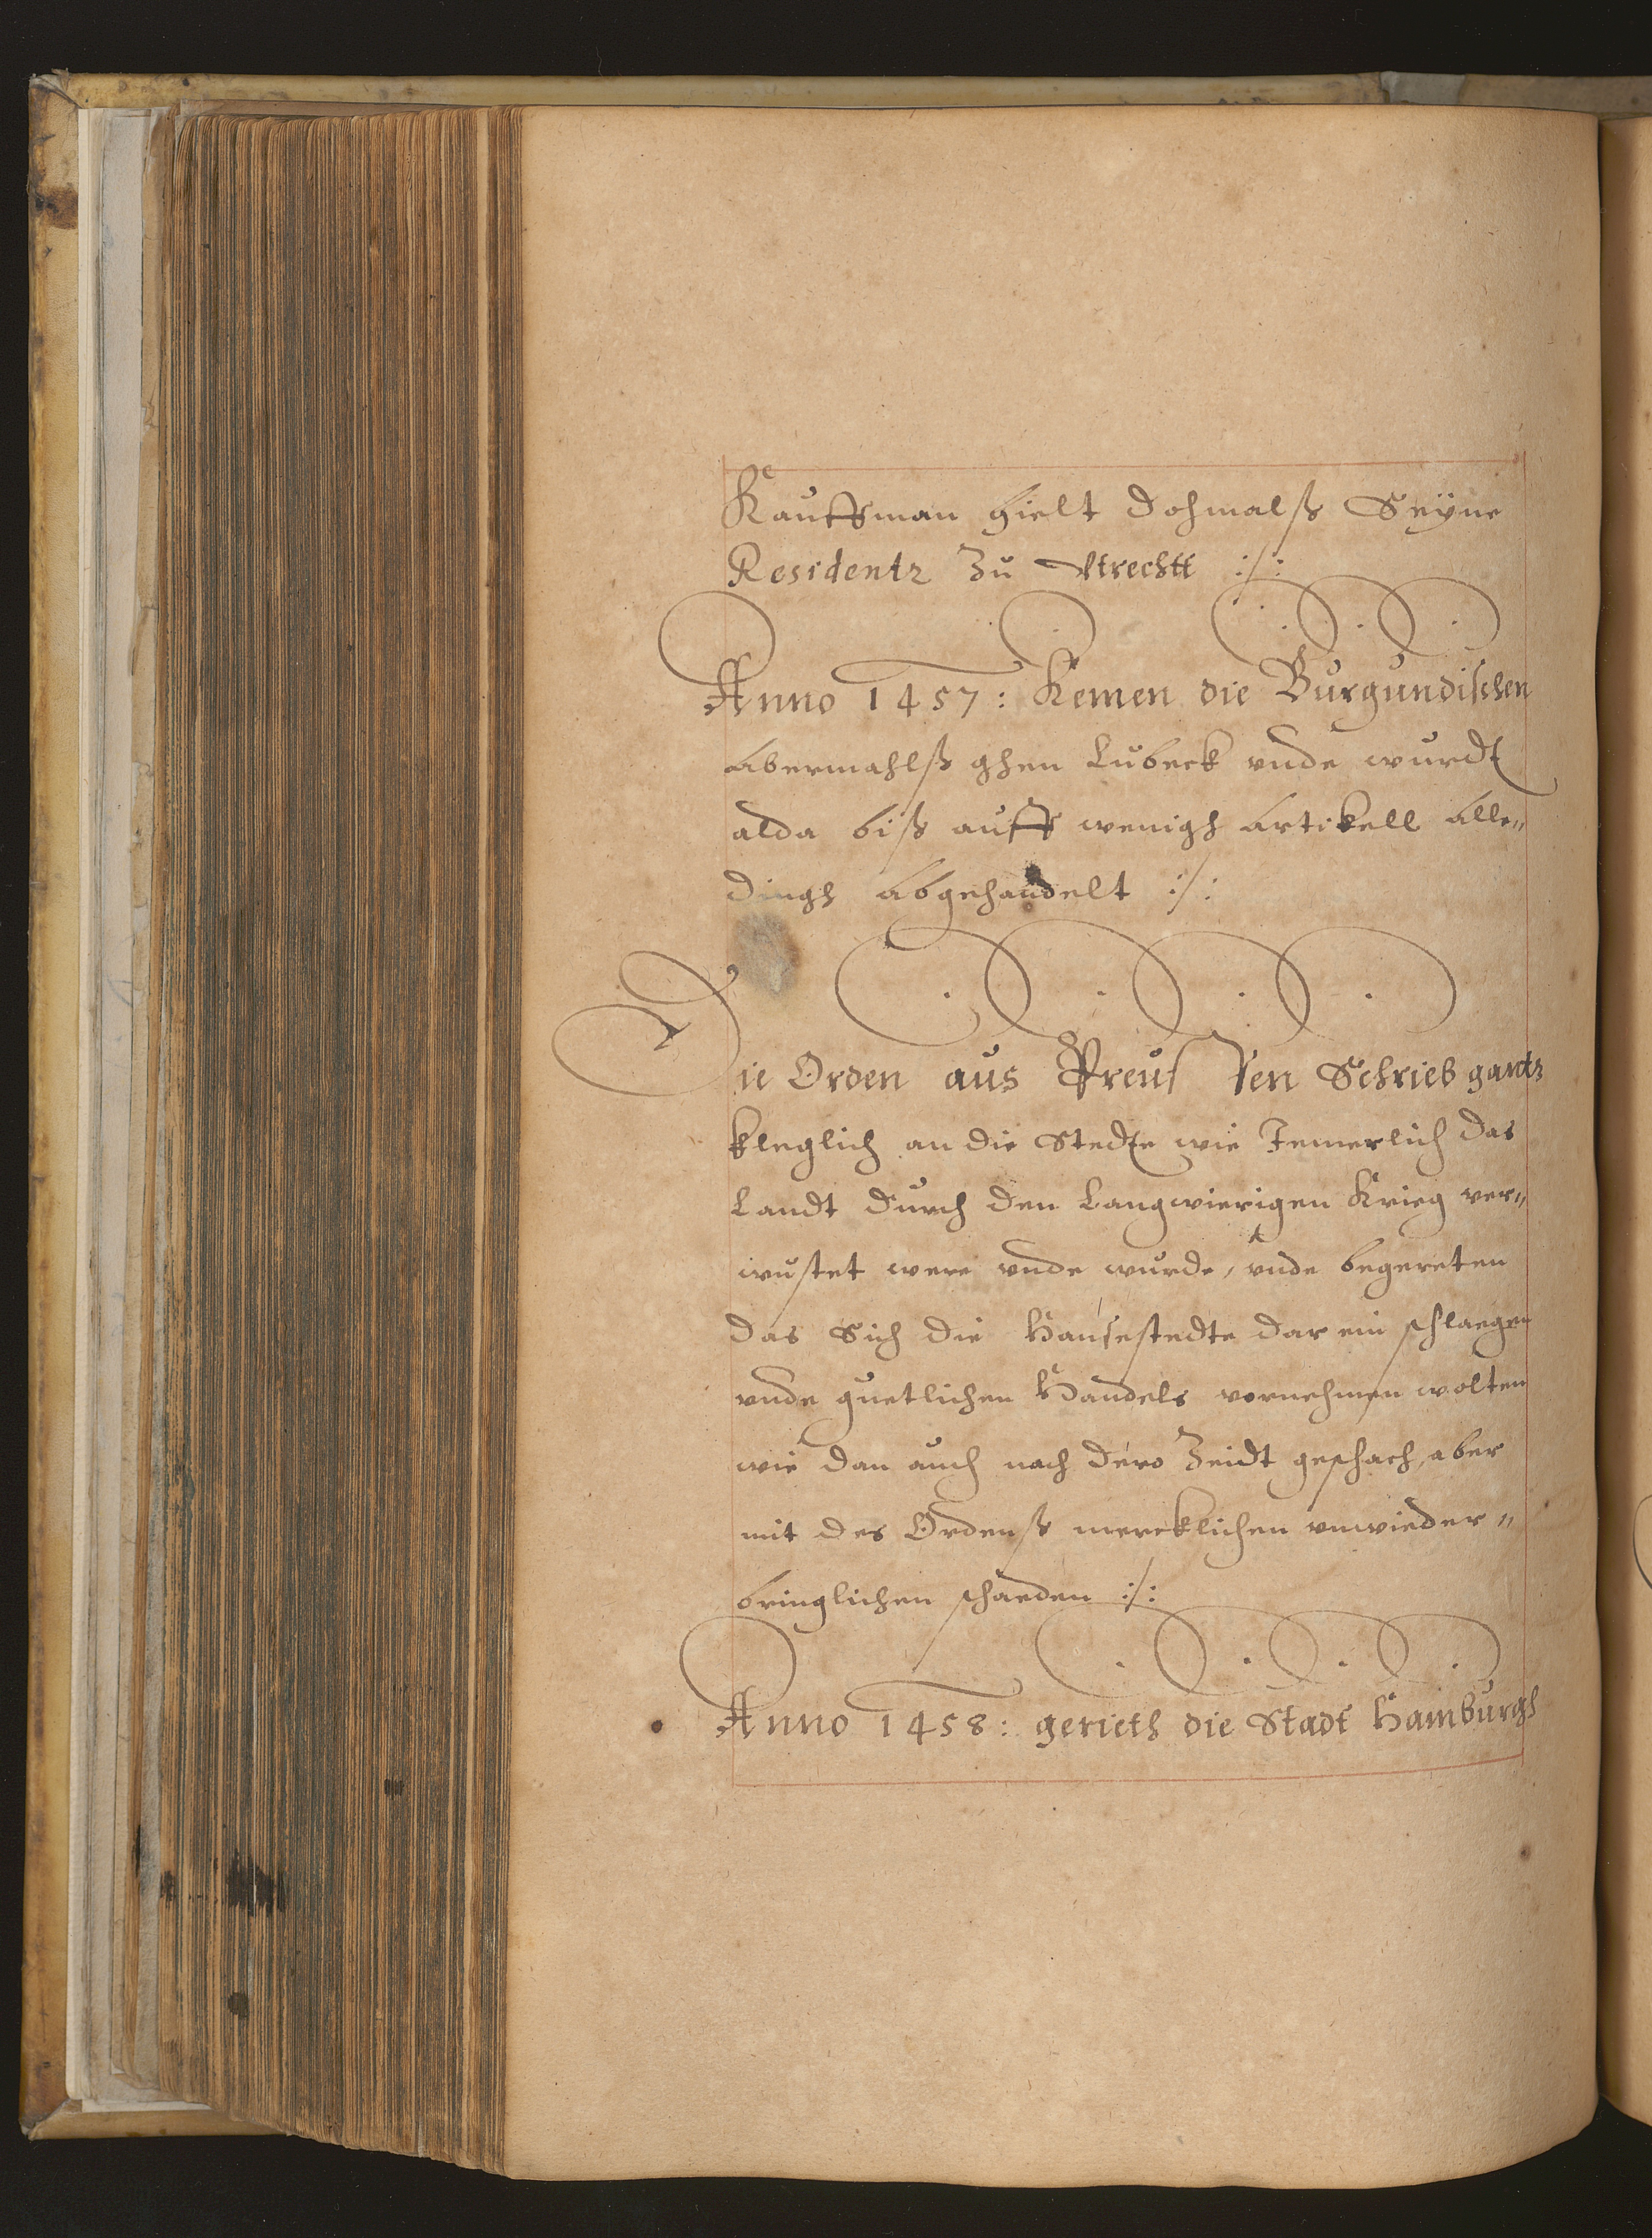 Kauffman hielt dohmalß Seÿne
Residentz Zu Vtrechtt :/:
Anno 1457: Kemen die Burgundischen
abermahlß ghen Lubeck vnde wurdt
alda biß auff wenigh artikell alle„
dingh abgehandelt :/:
Die Orden aus Preussen Schrieb gantz
kleglich an die Stedte wie Jemerlich das
Landt durch den Langwierigen Krieg ver„
wustet were vnde wurde, vnde begereten
das Sich die Hansestedte dar ein schlaegen
vnde guetlichen Handels vornehmen wolten
wie dan auch nach dero Zeidt geschach, aber
mit des Ordenß mercklichen vnwieder„
bringlichen schaeden :/:
Anno 1458: gerieth die Stadt Hamburgh